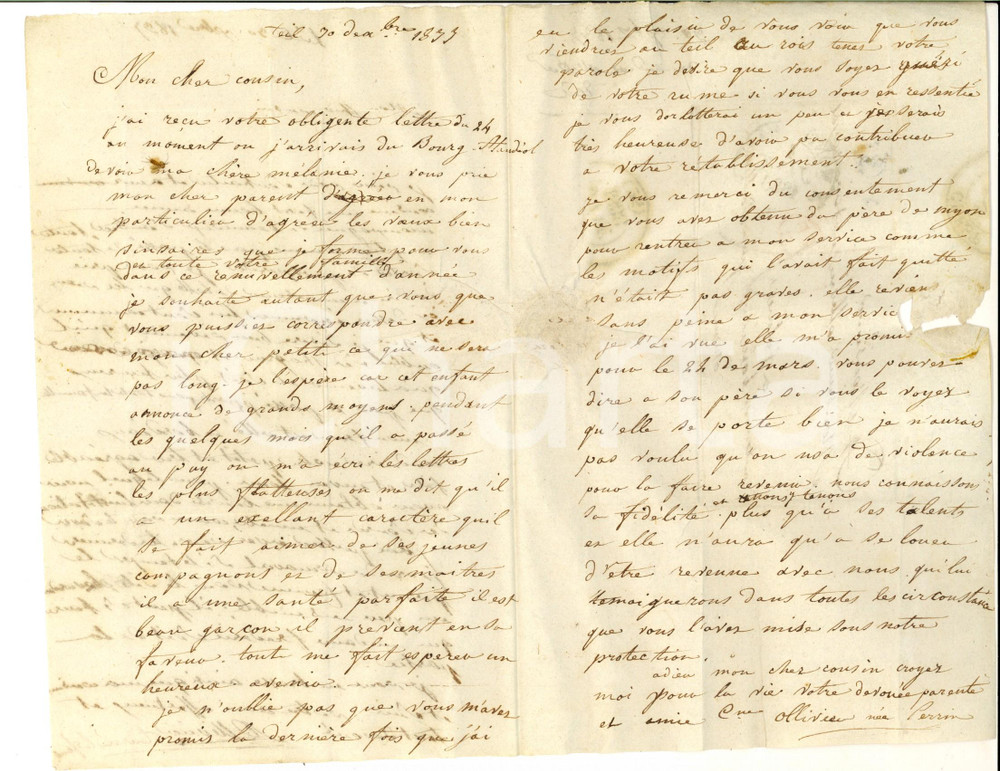 teil 30 dexbre 1833
Mon cher cousin,
j'ai reçu votre obligente lettre du 24
au moment ou j'arrivais du Bourg St andiol
de voir ma chère mélanie. je vous prie
mon cher parent en mon
particulier d'agreer les vœux bien
sinsaires que je forme pour vous
et toute votre famille
dans ce renuvellement d'année
je souhaite autant que vous que
vous puissiez correspondre avec
mon cher petit ce qui ne sera
pas long. je l'espère car cet enfant
annonce de grands moyens pendant
les quelques mois qu'il a passé
au pay on m'a écri lès lettres
les plus flatteuses on ma dit qu'il
a un exellant caractère quil
se fait aimer de ses jeunes
compagnons et de ses maitres
il a une santé parfaite il est
beau garçon il prévient en sa
faveur. tout me fait esperer un
heureux avenir.
je n'oublie pas que vous m'avez
promis la dernière fois que j'ai
eu le plaisir de vous voir que vous
viendriez au teil au rois tenes votre
parole je desire que vous soyez guéri
de votre rume si vous vous en ressentié
je vous dorlotterai un peu et je serais
très heureuse d'avoir pu contribuer
a votre rétablissement.
je vous remerci du consentement
que vous avez obtenu du père de myon
pour rentrer a mon service comme
les motifs qui l'avait fait quitté
n'était pas graves. elle reviens
sans peine a mon servic
je l'ai vue elle m'a promi
pour le 24 de mars. vous pouvez
dire a son père si vous le voyez
qu'elle se porte bien je n'aurais
pas voulu qu'on usa de violence
pour la faire revenir. nous connaisson
et nous tenons
sa fidélité plus qu'a ses talents
et elle n'aura qu'a se louer
d'etre revenue avec nous qui lui
temoignerons dans toutes les circonstance
que vous l'avez mise sous notre
protection.
adieu mon cher cousin croyez
moi pour la vie votre devouée parente
et amie Cne Ollivier née Perrin